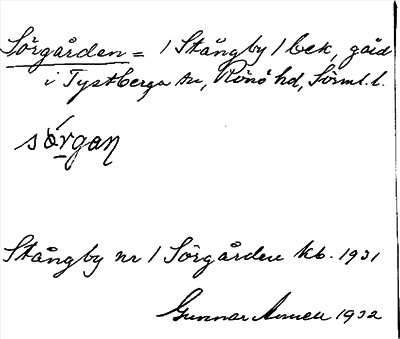 Sörgården = 1 Stångby 1 bek, gård
i Tystberga sn, Rönö hd, Sörml. l.
sǿrgan
Stångby nr 1 Sörgården kb. 1931
Gunnar 1932